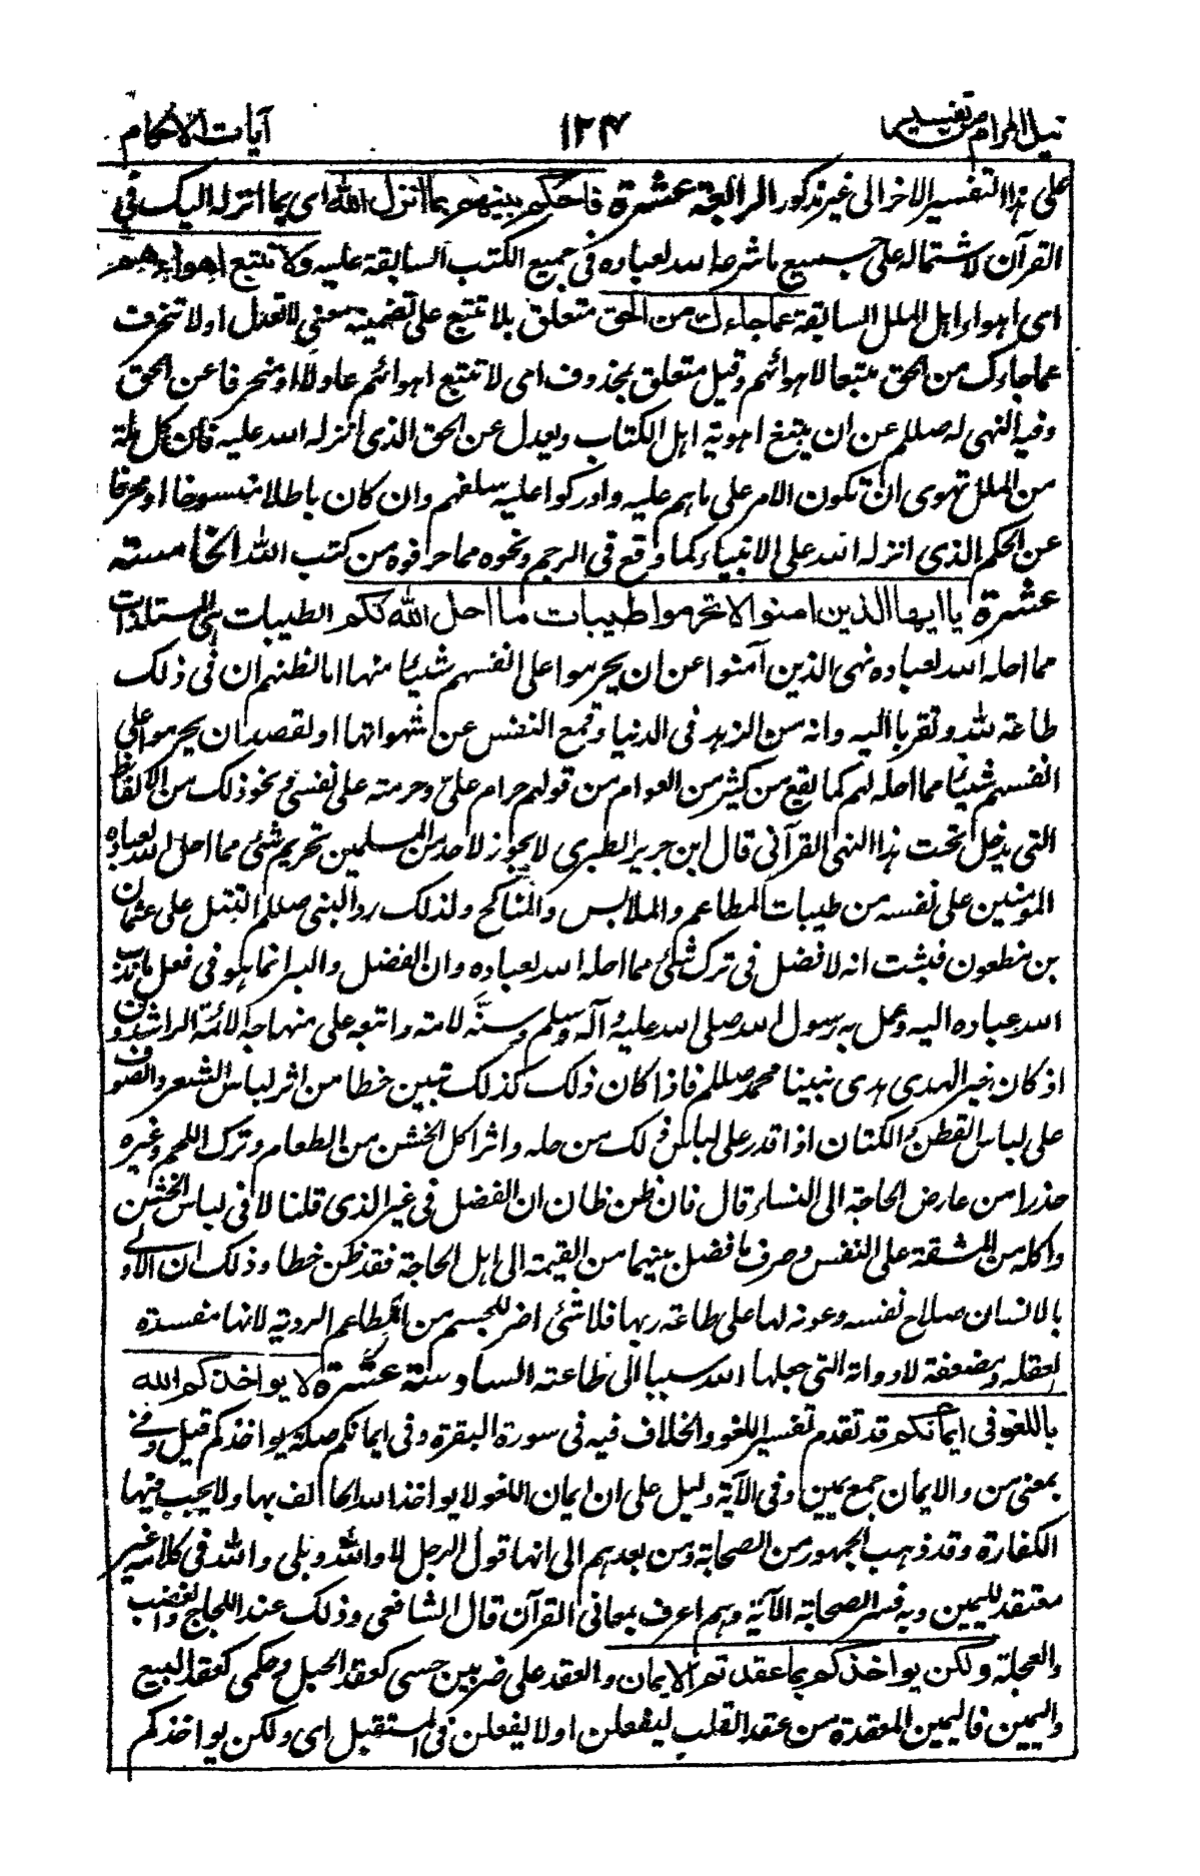 نيل المرام من تفسير
١٢٤
آيات الاحكام
على هذا التفسير الاخر الى غير مذكور الرابعة عشرة فاحكم بينهم بما انزل الله اى بما انزله اليك في
القرآن لاشتماله على جميع ما شرعه الله لعباده فى جميع الكتب السابقة عليه ولا تتبع اهواءهم
اى اهواء اهل الملل السابقة عما جاءك من الحق متعلق بلا تتبع على تضمينه معنى لا تعدل او لا تنحرف
عما جاءك من الحق متبعا لاهوائهم وقيل متعلق بمحذوف اى لا تتبع اهوائهم عادلا او منحرفا عن الحق
وفيه النهى له صللم عن ان يتبع اهوية اهل الكتاب ويعدل عن الحق الذى انزله الله عليه فان كل ملة
من الملل تهوى ان تكون الامر على ما هم عليه وادركوا عليه سلفهم وان كان باطلا منسوخا او محرفا
عن الحكم الذى انزله الله على الانبياء كما وقع فى الرجم ونحوه مما حرفوه من كتب الله الخامسة
عشرة يا ايها الذين امنوا لا تحرموا طيبات ما احل الله لكم الطيبات هى المستلذات
مما احله الله لعباده نهى الذين آمنوا عن ان يحرموا على انفسهم شيئا منها اما لظنهم ان فى ذلك
طاعة لله وتقربا اليه وانه من الزهد فى الدنيا وقمع النفس عن شهواتها او لقصد ان يحرموا على
انفسهم شيئا مما احله لهم كما يقع من كثير من العوام من قولهم حرام علىّ وحرمته على نفسى ونحو ذلك من الالفاظ
التى يدخل تحت هذا النهى القرآنى قال ابن جرير الطبرى لا يجوز لاحد من المسلمين تحريم شئى مما احل الله لعباده
المومنين على نفسه من طيبات المطاعم والملابس والمناكح ولذلك رد النبى صللم التبتل على عثمان
بن مظعون فثبت انه لا فضل فى ترك شئى مما احله الله لعباده وان الفضل والبر انما هو فى فعل ما ندب
الله عباده اليه وعمل به رسول الله صلى الله عليه وآله وسلم وسنَّه لامته واتبعه على منهاجه الائمة الراشدون
اذ كان خير الهدى هدى نبينا محمد صللم فاذا كان ذلك كذلك تبين خطا من اثر لباس الشعر والصوف
على لباس القطن والكتان اذا قدر على لباس ذلك من حله واثر اكل الخشن من الطعام وترك اللحم وغيره
حذرا من عارض الحاجة الى النساء قال فان ظن ظان ان الفضل فى غير الذى قلنا لا فى لباس الخشن
واكله من المشقة على النفس وصرف ما فضل بينهما من القيمة الى اهل الحاجة فقد ظن خطا وذلك ان الاولى
بالانسان صلاح نفسه وعونه لها على طاعة ربها فلا شئى اضر للجسم من المطاعم الردية لانها مفسدة
لعقله ومضعفة لادواته التى جعلها الله سببا الى طاعته السادسة عشرة لا يواخذكم الله
باللغو فى ايمانكم قد تقدم تفسير اللغو والخلاف فيه فى سورة البقرة وفى ايمانكم صلة يواخذكم قيل وفى
بمعنى من والايمان جمع يمين وفى الآية دليل على ان ايمان اللغو لا يواخذ الله الحالف بها ولا يجب فيها
الكفارة وقد ذهب الجمهور من الصحابة ومن بعدهم الى انها قول الرجل لا والله وبلى والله فى كلامه غير
معتقد لليمين وبه فسر الصحابة الآية وهم اعرف بمعانى القرآن قال الشافعى وذلك عند اللجاج والغضب
والعجلة ولكن يواخذكم بما عقدتم الايمان والعقد على ضربين حسى كعقد الحبل وحكمى كعقد البيع
واليمين فاليمين المعقدة من عقد القلب ليفعلن او لا يفعلن فى المستقبل اى ولكن يواخذكم